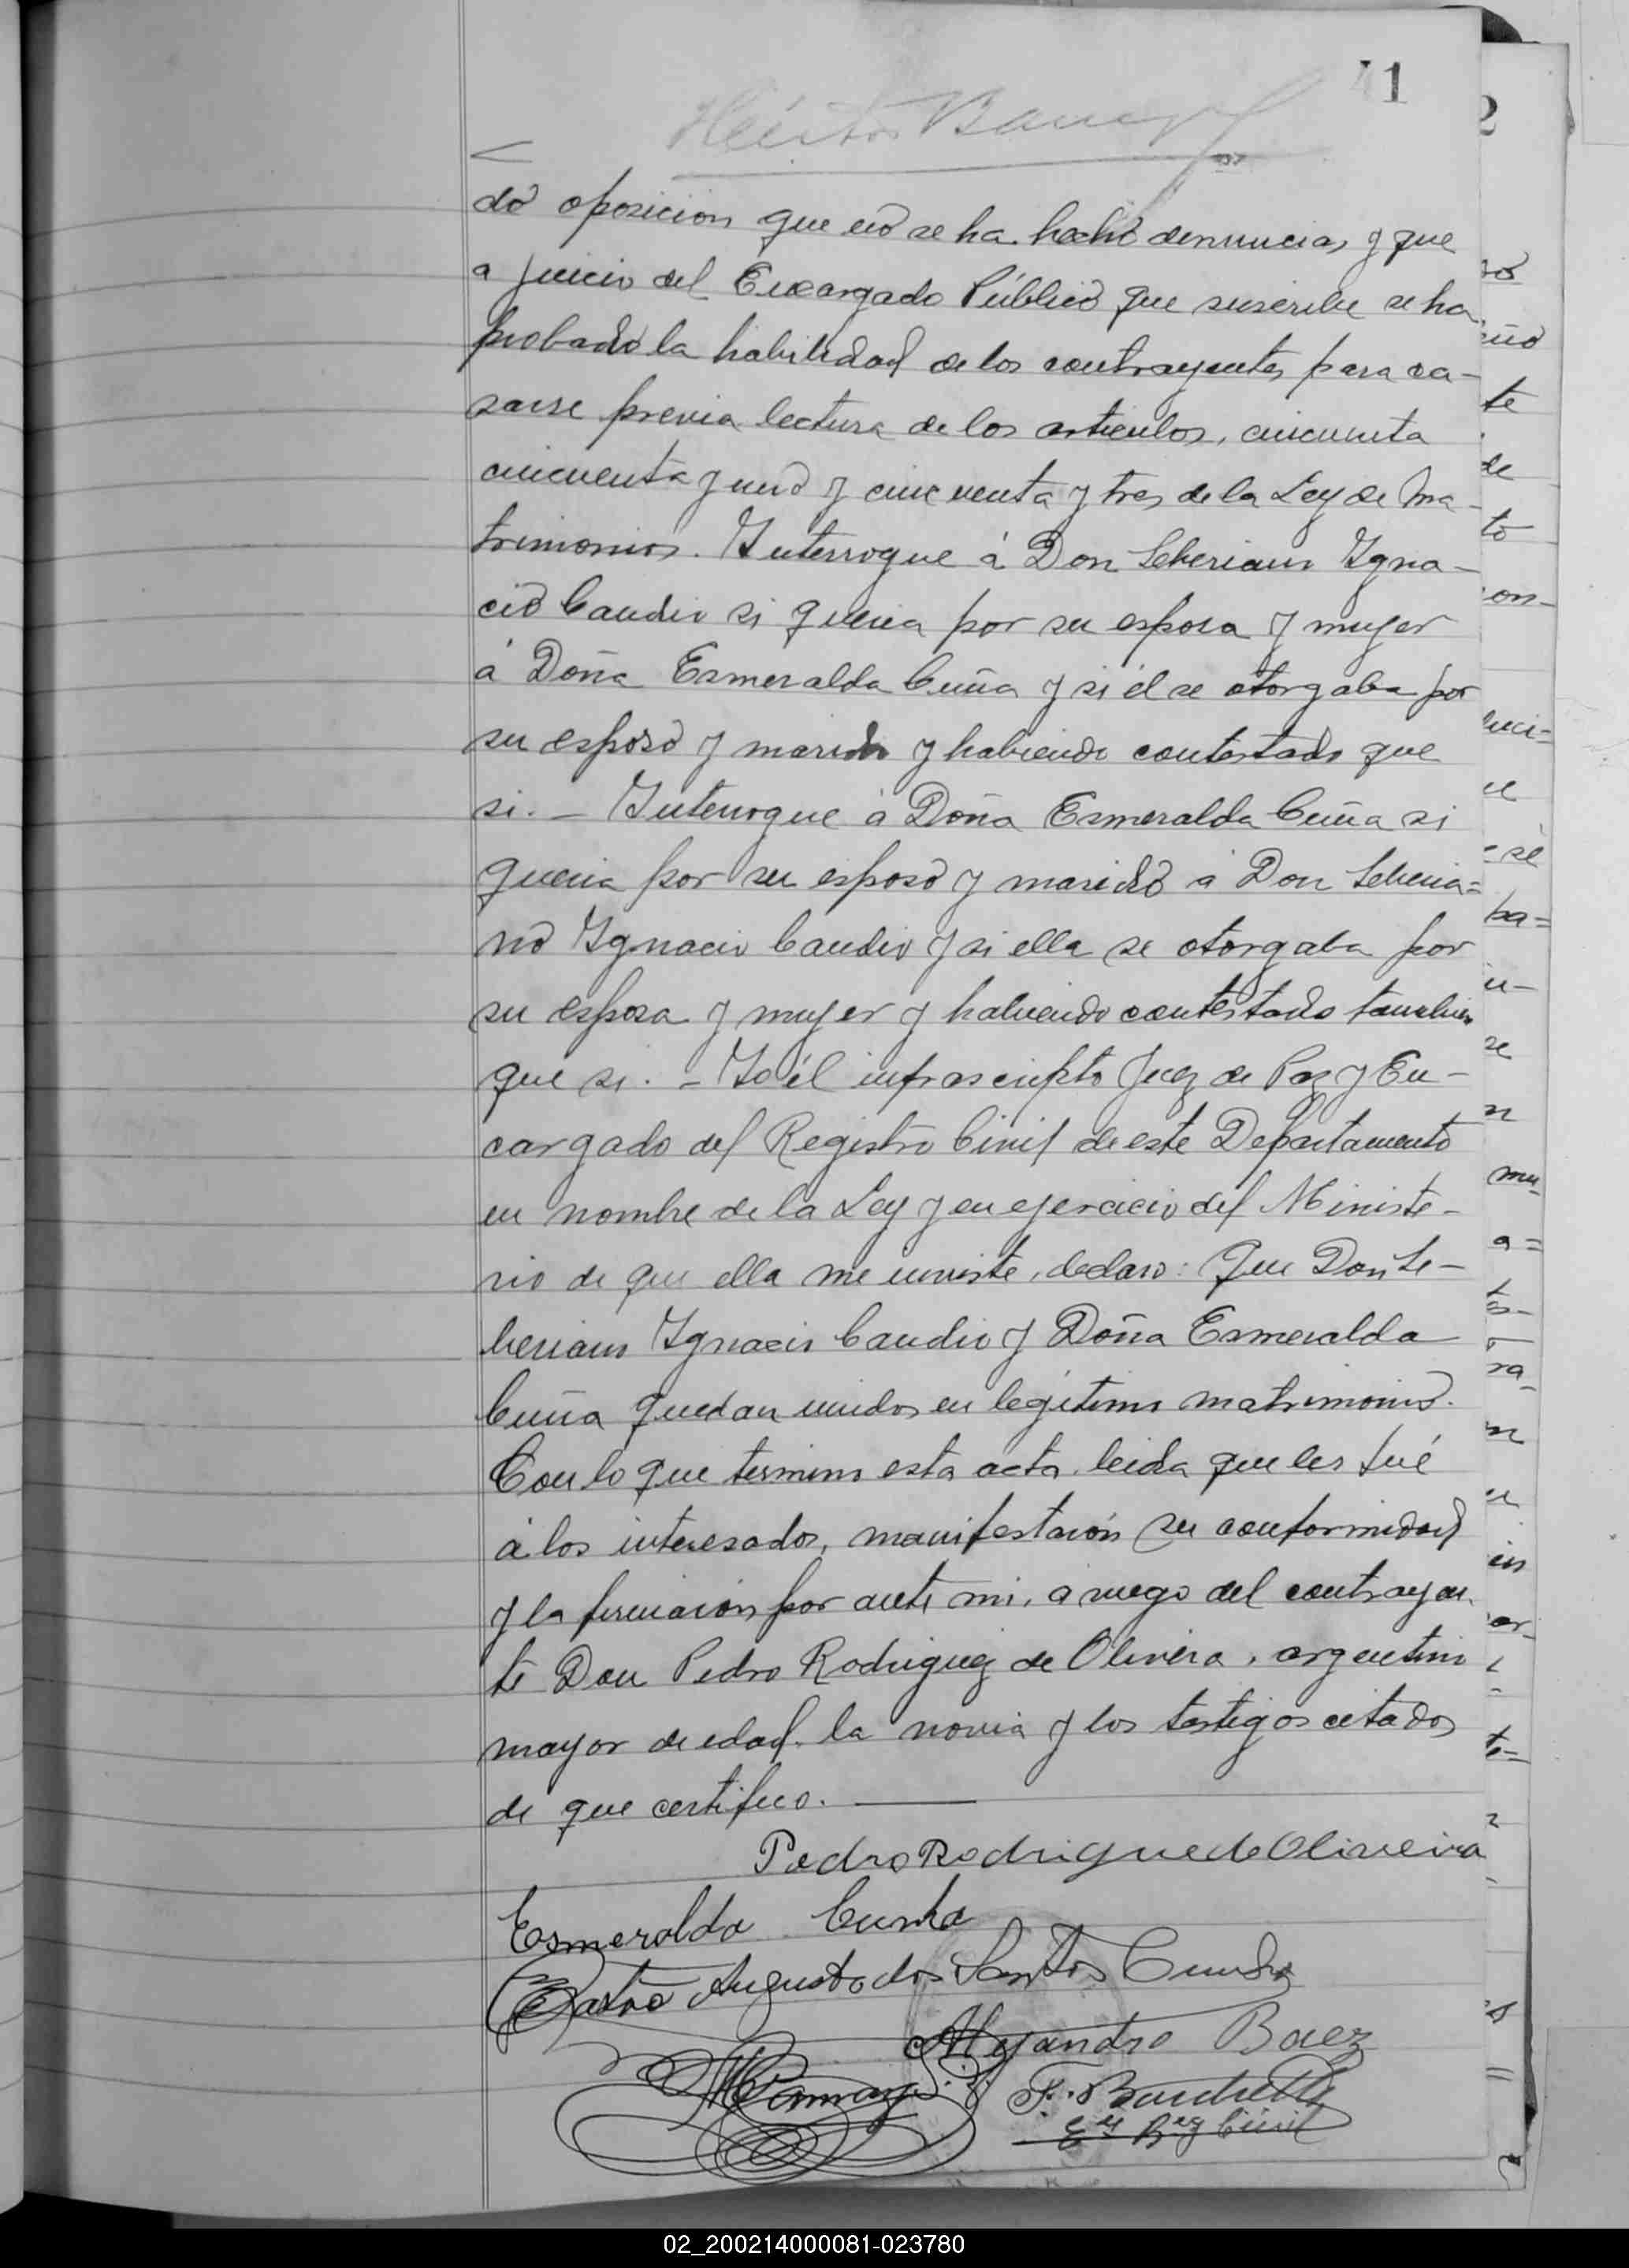 41
Héctor
do oposicion que no se ha hecho denuncias y que
a juicio del Encargado Público que suscribe se ha
probado la habilidad de los contrayentes para ca-
sarse previa lectura de los articulos, cincuenta
cincuenta y uno y cincuenta y tres de la Ley de Ma-
trimonios. Interrogue á Don Seberiano Igna-
cio Candio si queria por su esposa y mujer
á Doña Esmeralda Cuña y si él se otorgaba por
su esposo y marido y habiendo contestado que
si. - Interrogue á Doña Esmeralda Cuña si
queria por su esposo y marido á Don Seberia=
no Ignacio Candio y si ella se otorgaba por
su esposa y mujer y habiendo contestado tambien
que si. - Yo él infrascripto Juez de Paz y En-
cargado del Registro Civil de este Departamento
en nombre de la Ley y en ejercicio del Ministe-
rio de que ella me inviste, declaro: Que Don Se-
beriano Ignacio Candio y Doña Esmeralda
Cuña quedan unidos en legitimo matrimonio.
Con lo que termino esta acta, leida que les fué
á los interesados, manifestarón su conformidad
y la firmarón por ante mi, a ruego del contrayen-
te Don Pedro Rodriguez de Olivera, argentino
mayor de edad la novia y los testigos citados
de que certifico.
Pedro Rodrigue de Oliveira
Esmeralda Cunha
Castro Augusto dos Santos Cunha
Alejandro Baez
F.
Eº Reg Civil
02_200214000081-023780